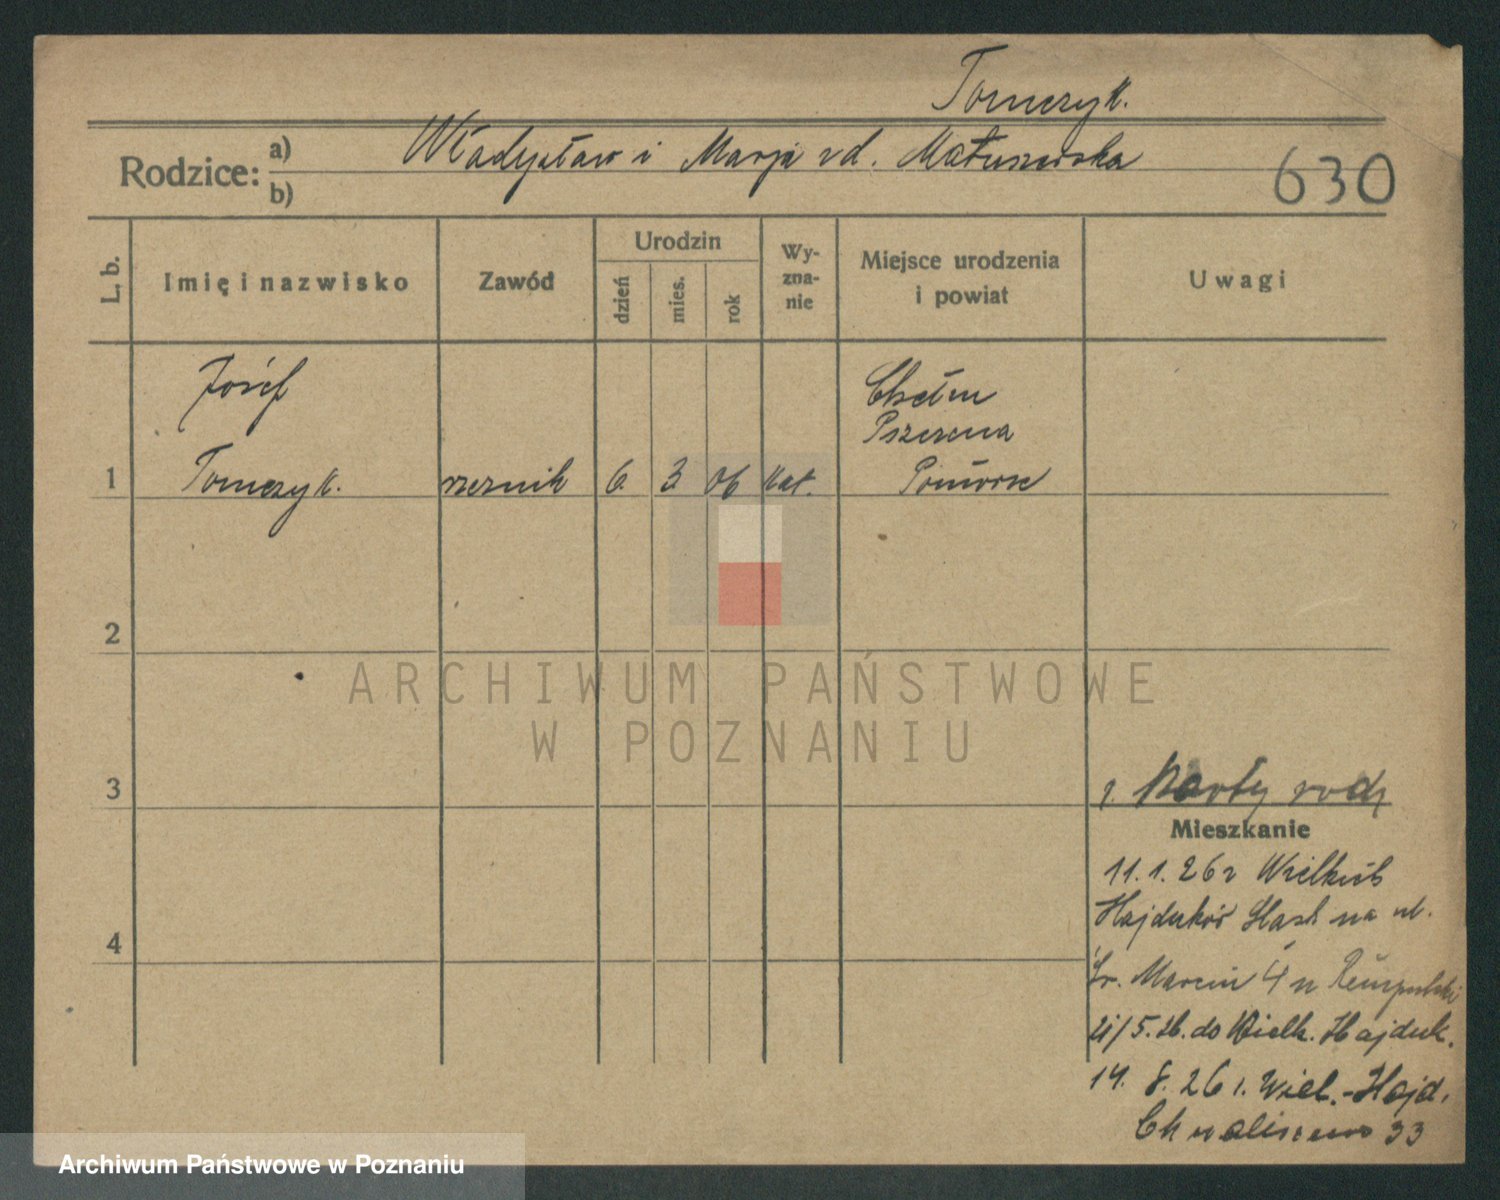 Tomczyk.
Rodzice: a) b)
Władysław i Marja zd. Matuszewska
630
L. b.
Imię i nazwisko
Zawód
Urodzin
dzień
mies.
rok
Wy-
zna-
nie
Miejsce urodzenia
i powiat
Uwagi
Józef
Chełm
1 Tomczyk. rzeźnik 6. 3. 06 kat.
Pomorze
2
ARCHIWUM PAŃSTWOWE
W POZNANIU
3
z. Karty rodz
Mieszkanie
11. 1. 26 z Wielkich
Hajduków Śląsk na ul.
4
Św. Marcin 4 u
21/5. 26. do Wielk. Hajduk.
14. 8. 26 z. Wiel.-Hajd.
Chwaliszewo 33
Archiwum Państwowe w Poznaniu